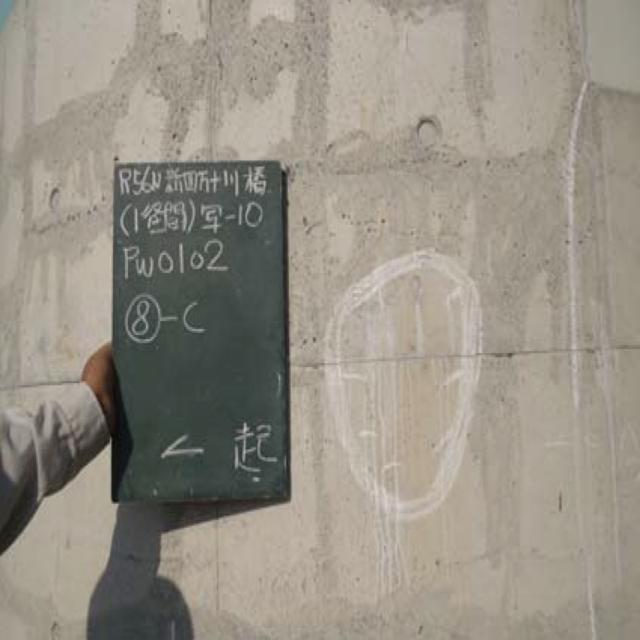 R56U 新四万十川橋
(1径間) 写-10
PW0102
⑧-C
← 起